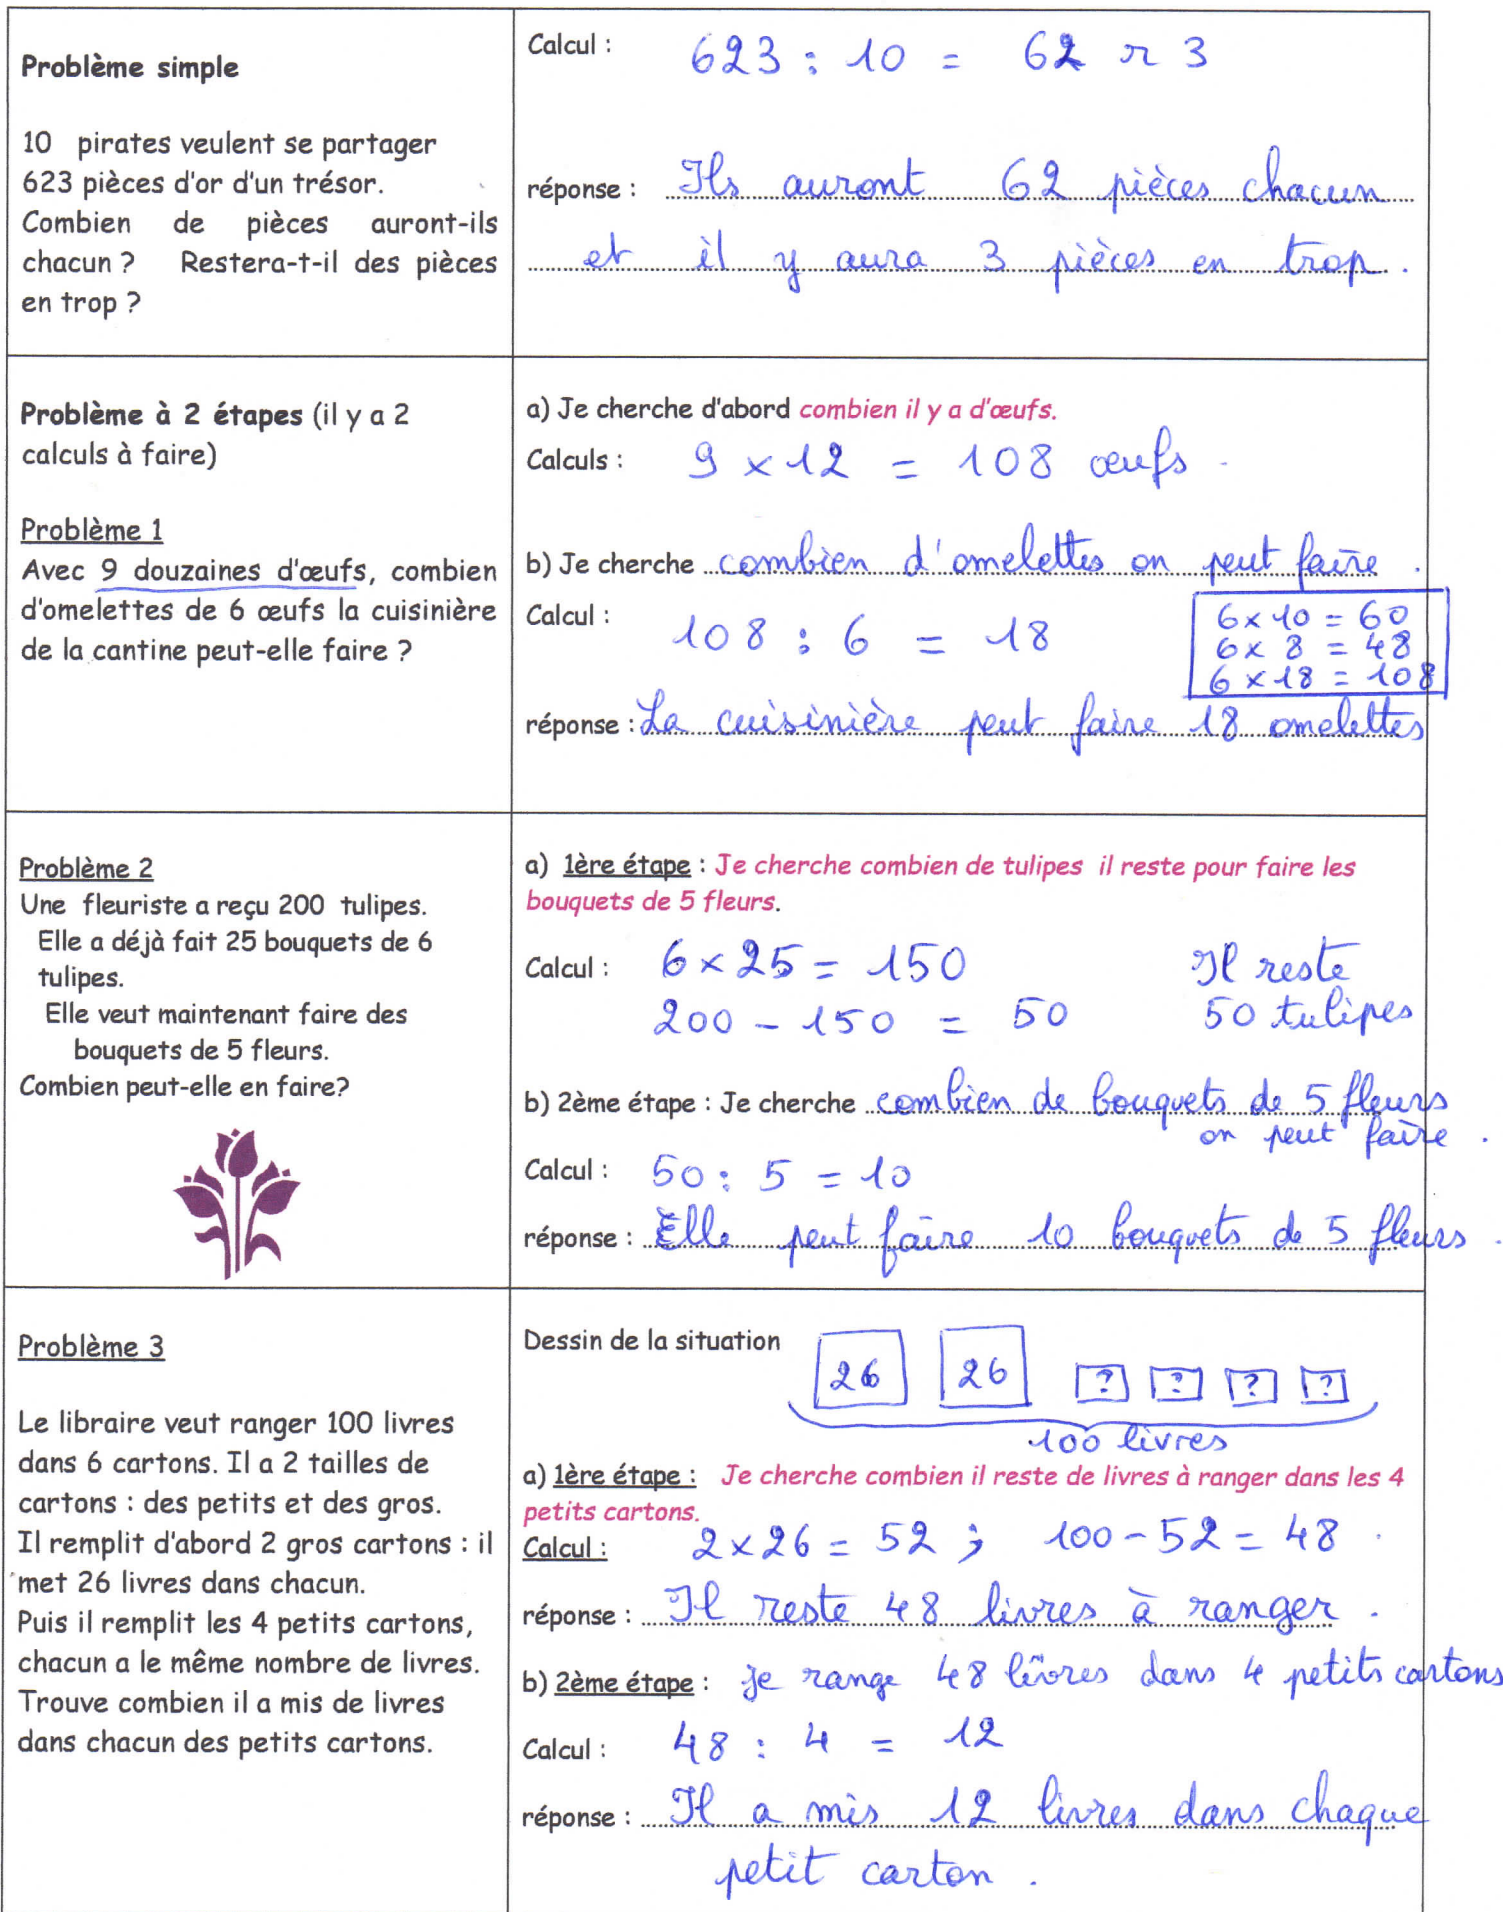 Problème simple
10 pirates veulent se partager
623 pièces d'or d'un trésor.
Combien de pièces auront-ils
chacun ? Restera-t-il des pièces
en trop ?
Calcul : 623 : 10 = 62 r 3
réponse : Ils auront 62 pièces chacun
et il y aura 3 pièces en trop.
Problème à 2 étapes (il y a 2
calculs à faire)
Problème 1
Avec 9 douzaines d'œufs, combien
d'omelettes de 6 œufs la cuisinière
de la cantine peut-elle faire ?
a) Je cherche d'abord combien il y a d'œufs.
Calculs : 9 x 12 = 108 œufs.
b) Je cherche combien d'omelettes on peut faire.
Calcul : 108 : 6 = 18
6 x 10 = 60
6 x 8 = 48
6 x 18 = 108
réponse : La cuisinière peut faire 18 omelettes
Problème 2
Une fleuriste a reçu 200 tulipes.
Elle a déjà fait 25 bouquets de 6
tulipes.
Elle veut maintenant faire des
bouquets de 5 fleurs.
Combien peut-elle en faire?
a) 1ère étape : Je cherche combien de tulipes il reste pour faire les
bouquets de 5 fleurs.
Calcul : 6 x 25 = 150 Il reste
200 - 150 = 50 50 tulipes
b) 2ème étape : Je cherche combien de bouquets de 5 fleurs
on peut faire.
Calcul : 50 : 5 = 10
réponse : Elle peut faire 10 bouquets de 5 fleurs.
Problème 3
Le libraire veut ranger 100 livres
dans 6 cartons. Il a 2 tailles de
cartons : des petits et des gros.
Il remplit d'abord 2 gros cartons : il
met 26 livres dans chacun.
Puis il remplit les 4 petits cartons,
chacun a le même nombre de livres.
Trouve combien il a mis de livres
dans chacun des petits cartons.
Dessin de la situation
26 26 ? ? ? ?
100 livres
a) 1ère étape : Je cherche combien il reste de livres à ranger dans les 4
petits cartons.
Calcul : 2 x 26 = 52 ; 100 - 52 = 48.
réponse : Il reste 48 livres à ranger.
b) 2ème étape : je range 48 livres dans 4 petits cartons
Calcul : 48 : 4 = 12
réponse : Il a mis 12 livres dans chaque
petit carton.